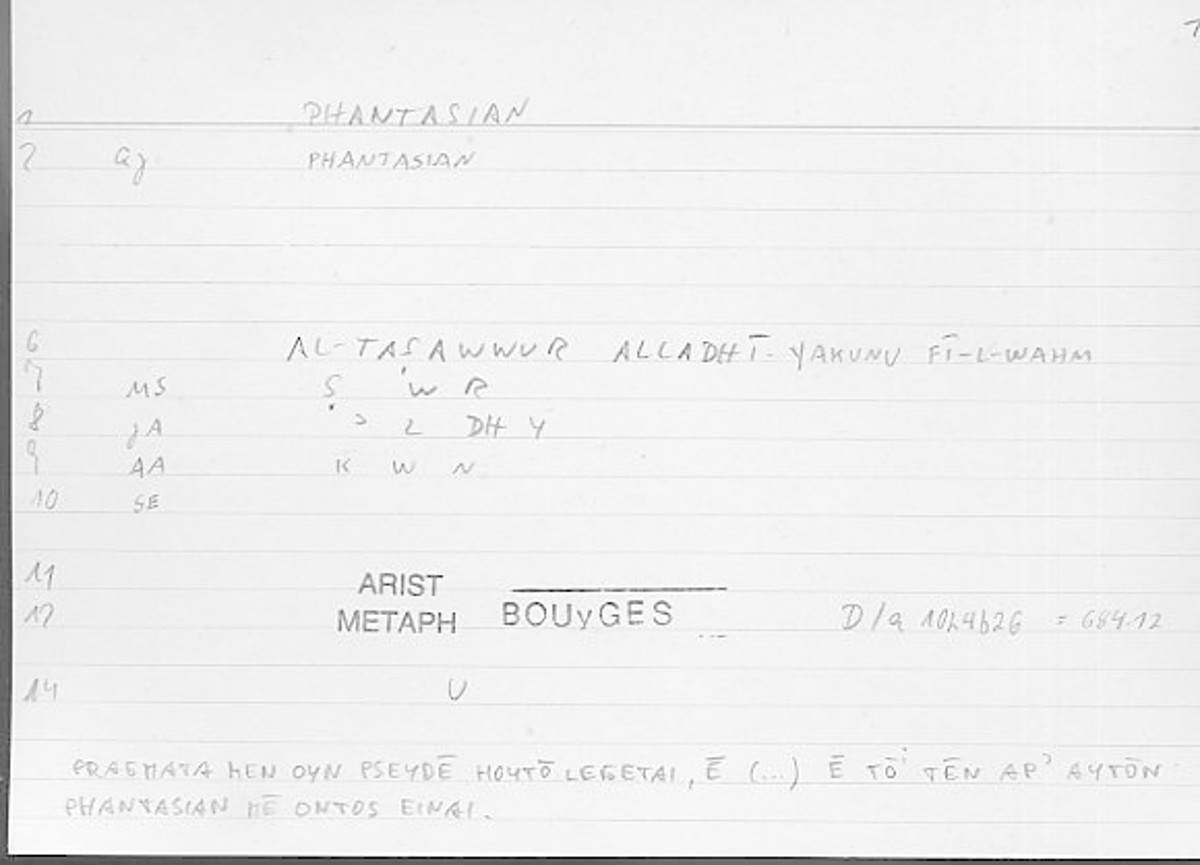 1 PHANTASIAN
2 Gj PHANTASIAN
6 AL-TAṢAWWUR ALLADHĪ YAKUNU FĪ-L-WAHM
7 MS Ṣ W R
8 jA ʾ L DH Y
9 AA K W N
10 SE
11 ARIST
12 METAPH BOUyGES D/a 1024b26 = 684.12
14 U
PRAGMATA MEN OYN PSEYDĒ HOYTŌ LEGETAI, Ē (...) Ē TŌ TĒN AP' AYTŌN
PHANTASIAN MĒ ONTOS EINAI.